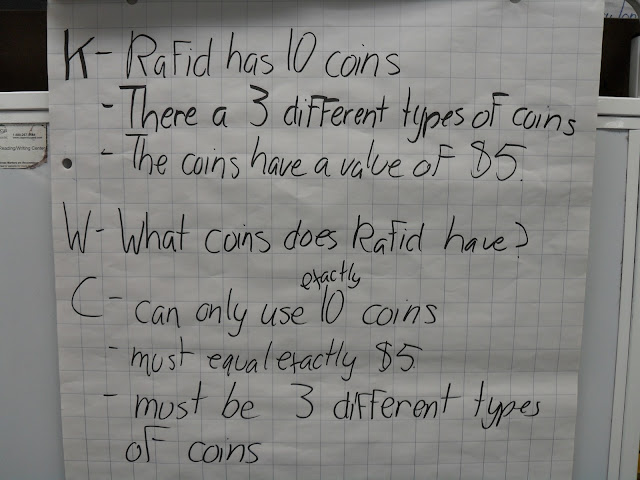 K- Rafid has 10 coins
- There a 3 different types of coins
- The coins have a value of $5.
W- What coins does Rafid have?
exactly
C- can only use 10 coins
- must equal exactly $5
- must be 3 different types
of coins
Reading/Writing Center